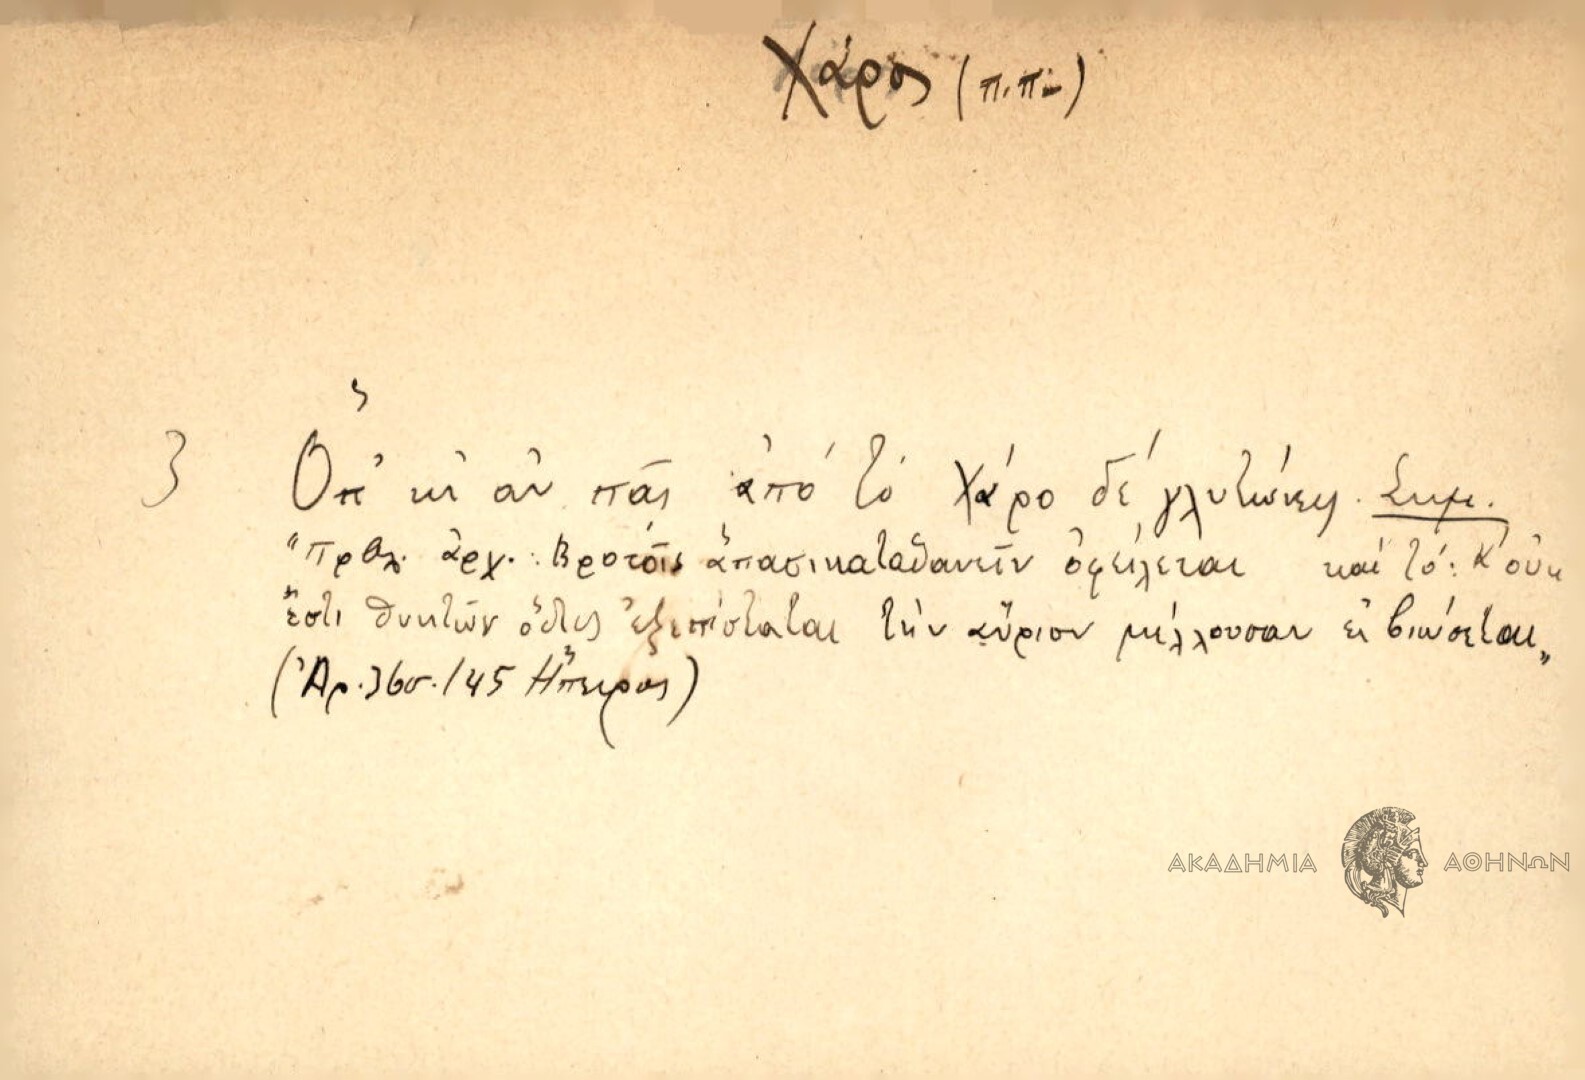 Χάρος (π.π.)
3 Ὅπ' κι ἂν πᾶς ἀπό τό Χάρο δέ γλυτώνεις. Σημ.
"Πρβλ. ἀρχ.: Βροτοῖς ἅπασι κατθανεῖν ὀφείλεται καί τό: Κ' οὐκ
ἔστι θνητῶν ὅστις ἐξεπίσταται τήν αὔριον μέλλουσαν εἰ βιώσεται„
(Ἀρ. 36 σ. 145 Ἤπειρος)
ΑΚΑΔΗΜΙΑ ΑΘΗΝΩΝ